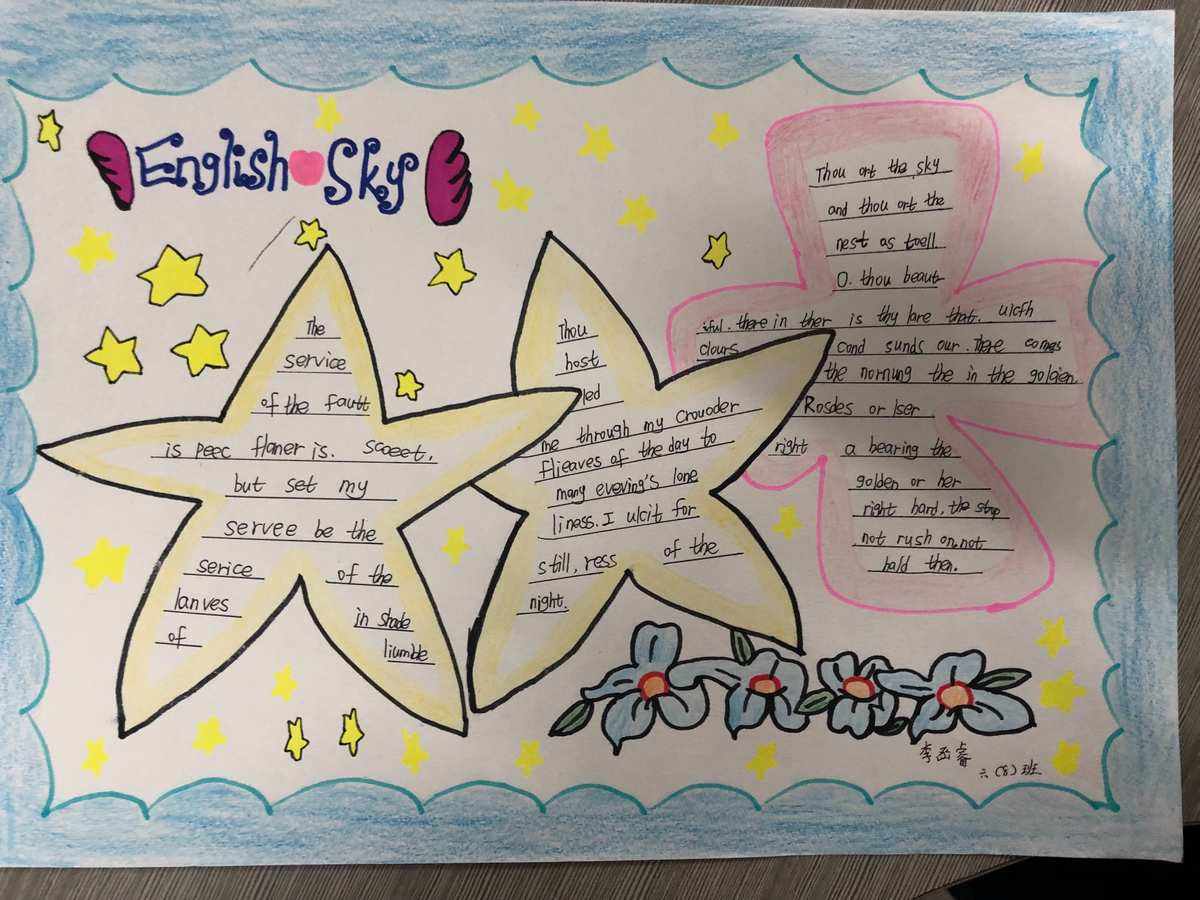 English Sky
The
service
of the fautt
is peec flaner is. scaeet.
but set my
servee be the
serice of the
lanves in shade
of liumble
Thou
host
led
me through my crowder
flieaves of the day to
many eveving's lone
liness. I ulcit for
still, ress of the
night.
Thou ort the sky
and thou ort the
nest as toell
O. thou beaut
iful. there in ther is thy lare that. ulcfh
clours cond sunds our. There comes
the nornung the in the golden
Rosdes or lser
right a bearing the
golden or her
right hard, the strop
not rush on, not
hald then.
李丞睿
六(8)班